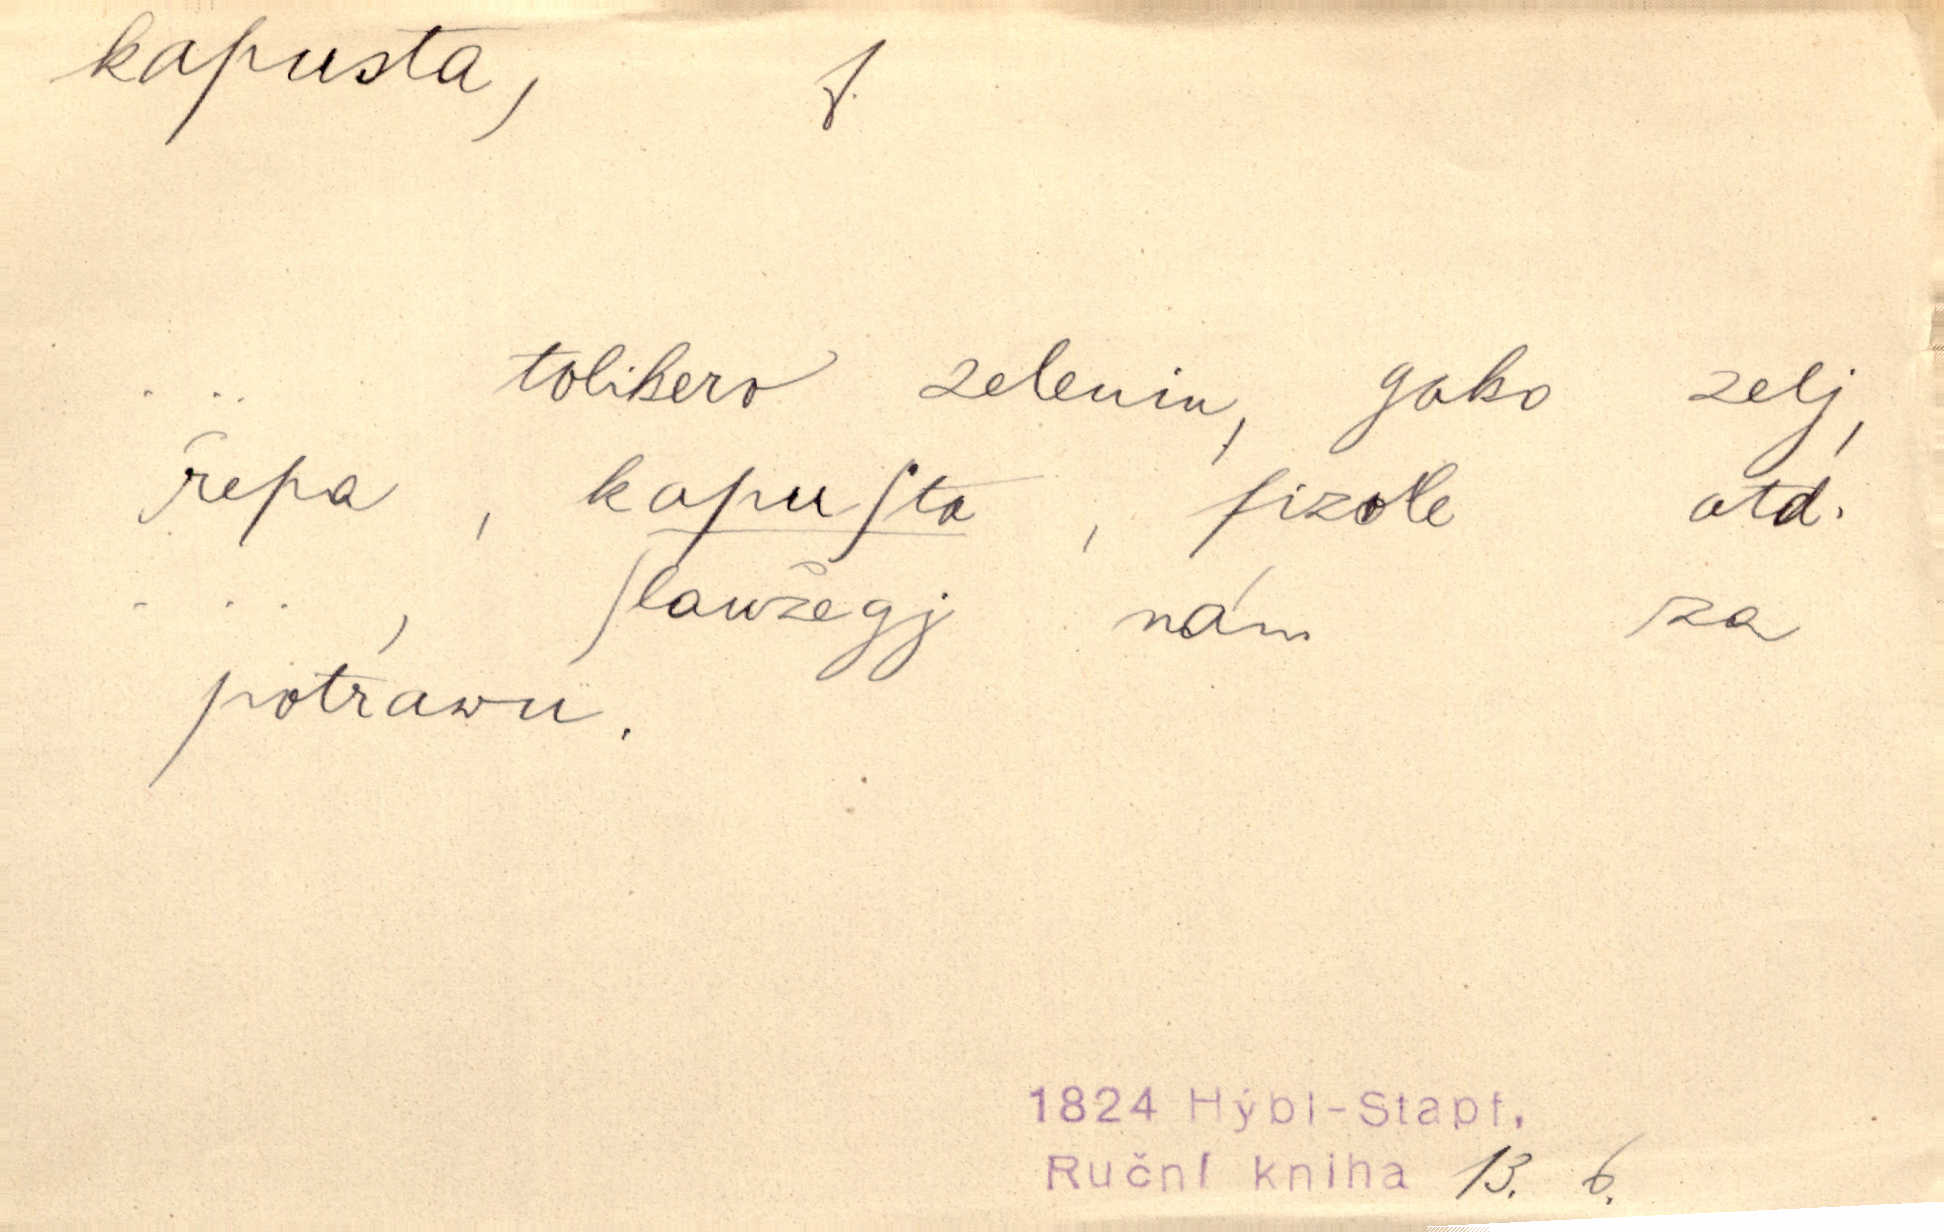 kapusta, f.
... tolikero zelenin, gako zelj,
řepa, kapuſta, fizole atd.
..., ſlaužegj nám za
potrawu.
1824 Hýbl-Stapf,
Ruční kniha 13. 6.